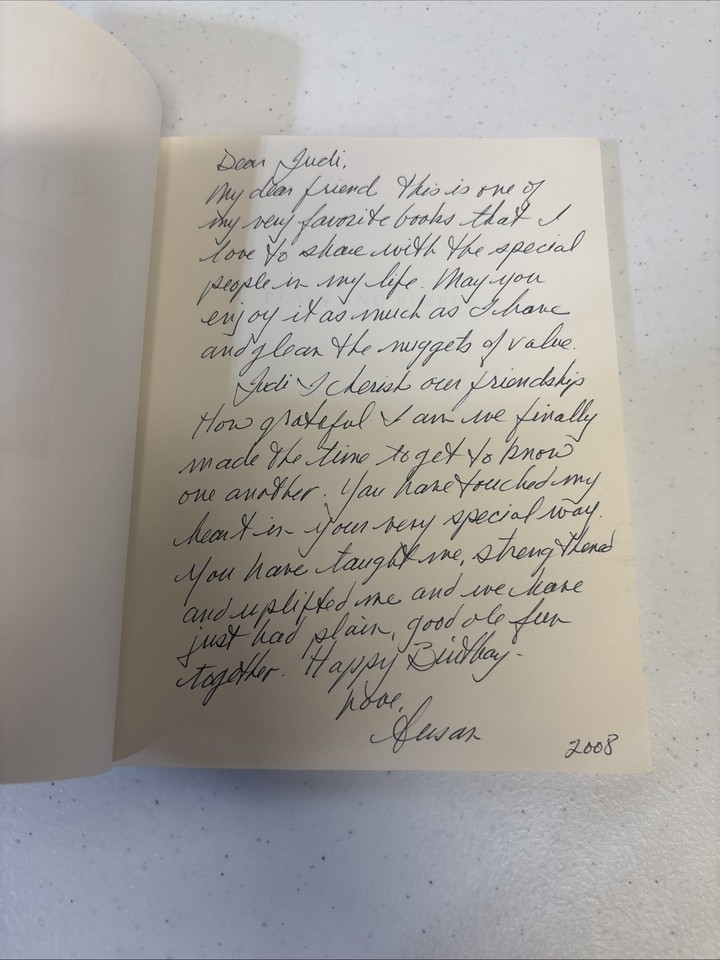 Dear Judi,
My dear friend this is one of
my very favorite books that I
love to share with the special
people in my life. May you
enjoy it as much as I have
and glean the nuggets of value.
Judi I cherish our friendship
How grateful I am we finally
made the time to get to know
one another. You have touched my
heart in your very special way.
You have taught me, strengthened
and uplifted me and we have
just had plain, good ole fun
together. Happy Birthday-
Love,
Susan
2008